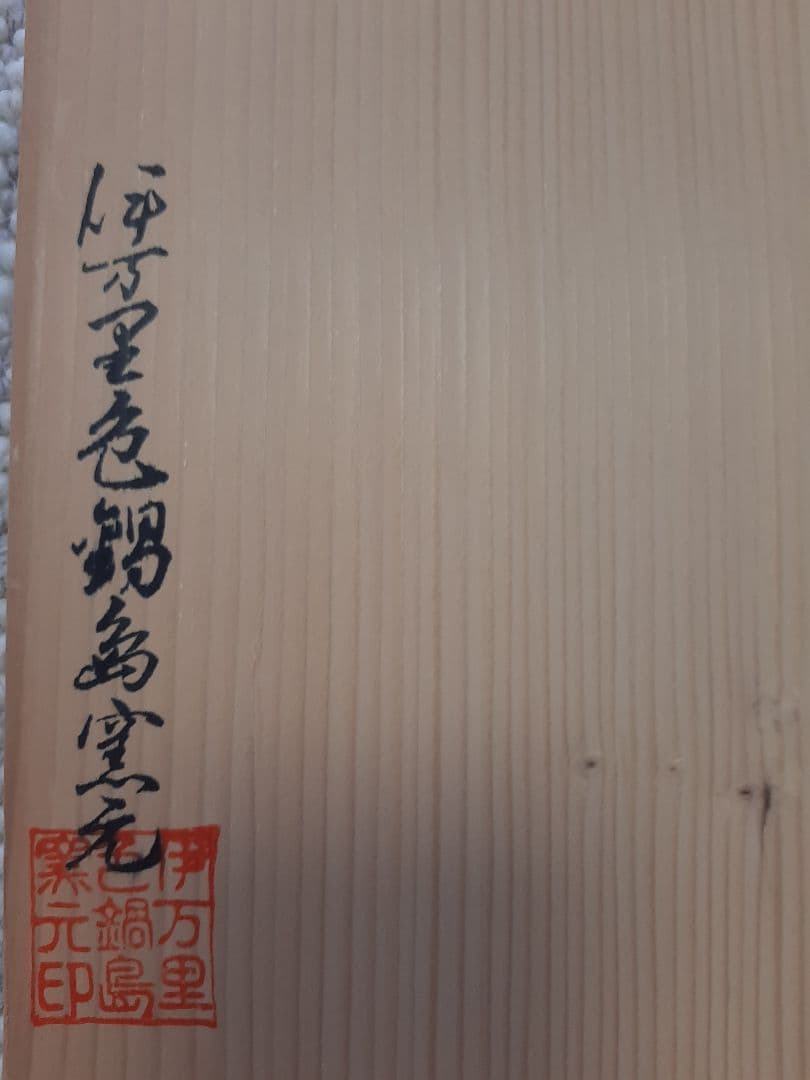 伊万里色鍋島窯元
伊万里
色鍋島
窯元印